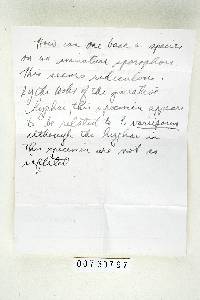 How can one base a species
on an immature sporophore
This seems ridiculous.
By the looks of the generative
hyphae this specimen appears
to be related to P. versiporus
although the hyphae in
this specimen are not as
inflated
00730797